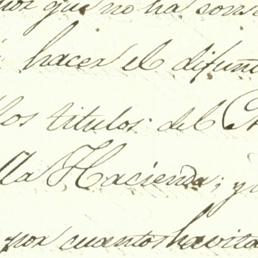 que no ha
hacer el difun
los titulos del
lla Hacienda; y
por cuantos havita